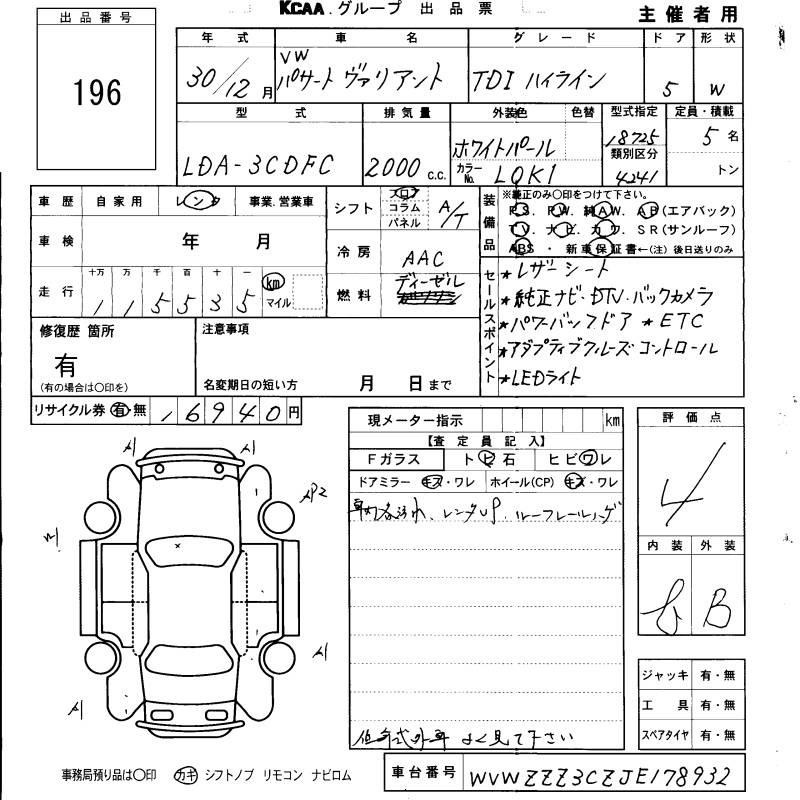 KCAA.グループ 出品票
主催者用
出品番号
196
年式 車名 グレード ドア 形状
30/12月 VW パサート ヴァリアント TDI ハイライン 5 W
型式 排気量 外装色 色替 型式指定 定員・積載
LDA-3CDFC 2000 c.c. ホワイトパール 18725 5名
カラーNo. LQK1 類別区分 4241 トン
車歴 自家用 レンタ 事業.営業車
車検 年 月
走行 十万 万 千 百 十 一
115535 km マイル
シフト フロア コラム パネル A/T
冷房 AAC
燃料 ディーゼル
装備品
※純正のみ〇印をつけて下さい。
P.S. P.W. 純A.W. A.B(エアバック)
T.V. ナビ. カワ. S R(サンルーフ)
ABS ・ 新車保証書←(注)後日送りのみ
セールスポイント
★レザーシート
★純正ナビ・DTV・バックカメラ
★パワーバックドア ★ETC
★アダプティブクルーズコントロール
★LEDライト
修復歴 箇所
有
(有の場合は〇印を)
注意事項
名変期日の短い方 月 日まで
リサイクル券 有 無 16940円
現メーター指示 km
【査定員記入】
Fガラス トビ石 ヒビワレ
ドアミラー キズ・ワレ ホイール(CP) キズ・ワレ
レンタUP. ルーフレール
見て下さい
評価点
4
内装 外装
B
A
A
AP2
A
A
ジャッキ 有・無
工具 有・無
スペアタイヤ 有・無
事務局預り品は〇印 カギ シフトノブ リモコン ナビロム
車台番号 WVWZZZ3CZJE178932